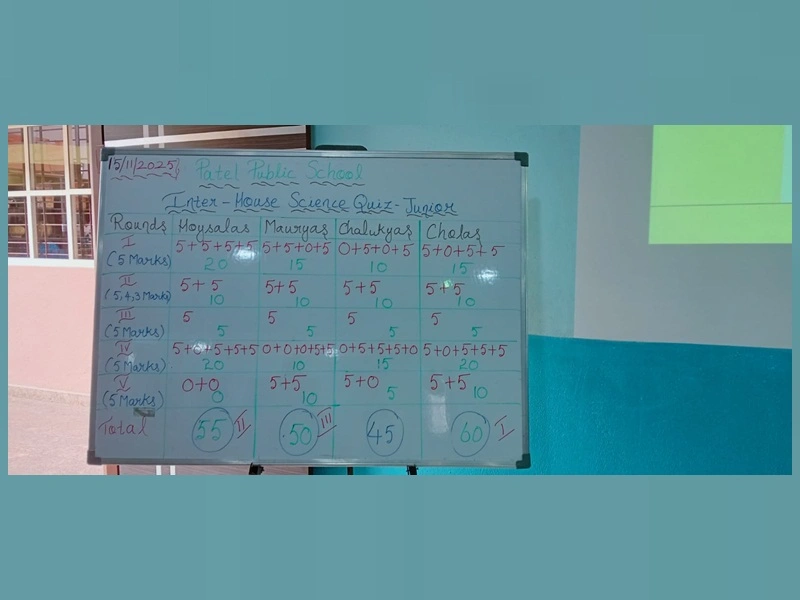 15/11/2025
Patel Public School
Inter-House Science Quiz-Junior
Rounds Hoysalas Mauryas Chalukyas Cholas
I 5+5+5+5 5+5+0+5 0+5+0+5 5+0+5+5
(5 Marks) 20 15 10 15
II 5+5 5+5 5+5 5+5
(5,4,3 Marks) 10 10 10 10
III 5 5 5 5
(5 Marks) 5 5 5 5
IV 5+0+5+5+5 0+0+0+5+5 0+5+5+5+0 5+0+5+5+5
(5 Marks) 20 10 15 20
V 0+0 5+5 5+0 5+5
(5 Marks) 0 10 5 10
Total 55 II 50 III 45 60 I